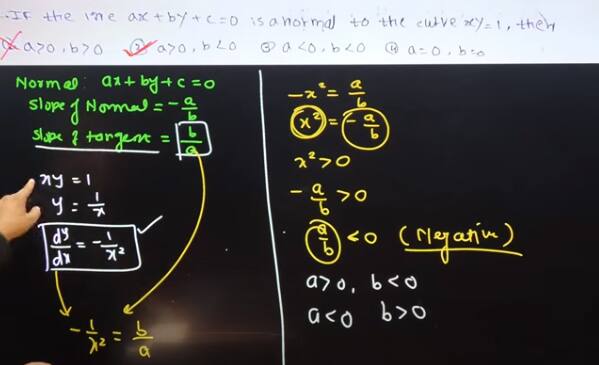 .If the line ax+by+c=0 is a normal to the curve xy=1, then
① a>0, b>0 ② a>0, b<0 ③ a<0, b<0 ④ a=0, b=0
Normal: ax+by+c=0
Slope of Normal = -a/b
slope of tangent = b/a
xy = 1
y = 1/x
dy/dx = -1/x²
-1/x² = b/a
-x² = a/b
x² = -a/b
x²>0
-a/b >0
a/b <0 (Negative)
a>0, b<0
a<0 b>0